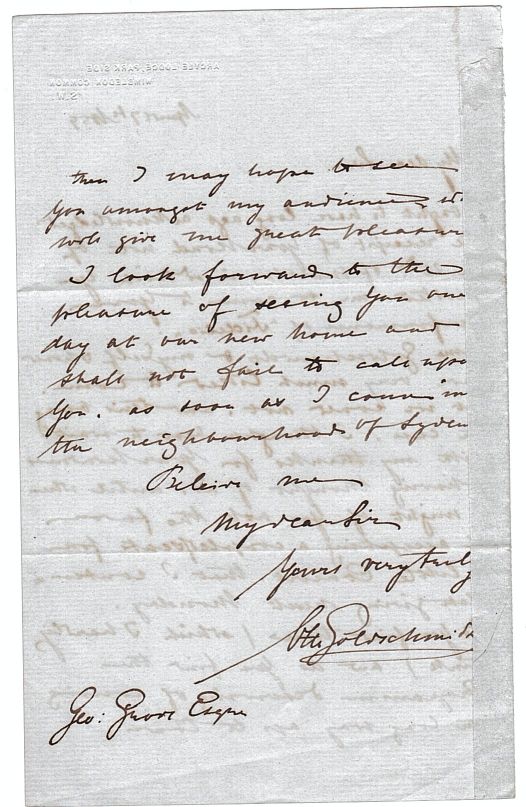 ARGYLE LODGE, PARK SIDE
WIMBLEDON COMMON
S.W.
then I may hope to see
you amongst my audience, it
will give me great pleasure
I look forward to the
pleasure of seeing you one
day at our new home and
shall not fail to call upon
you. as soon as I come in
the neighbourhood of Syden
Beleive me
My dear Sir
Yours very truly
Otto Goldschmidt
Geo: Grove Esqre